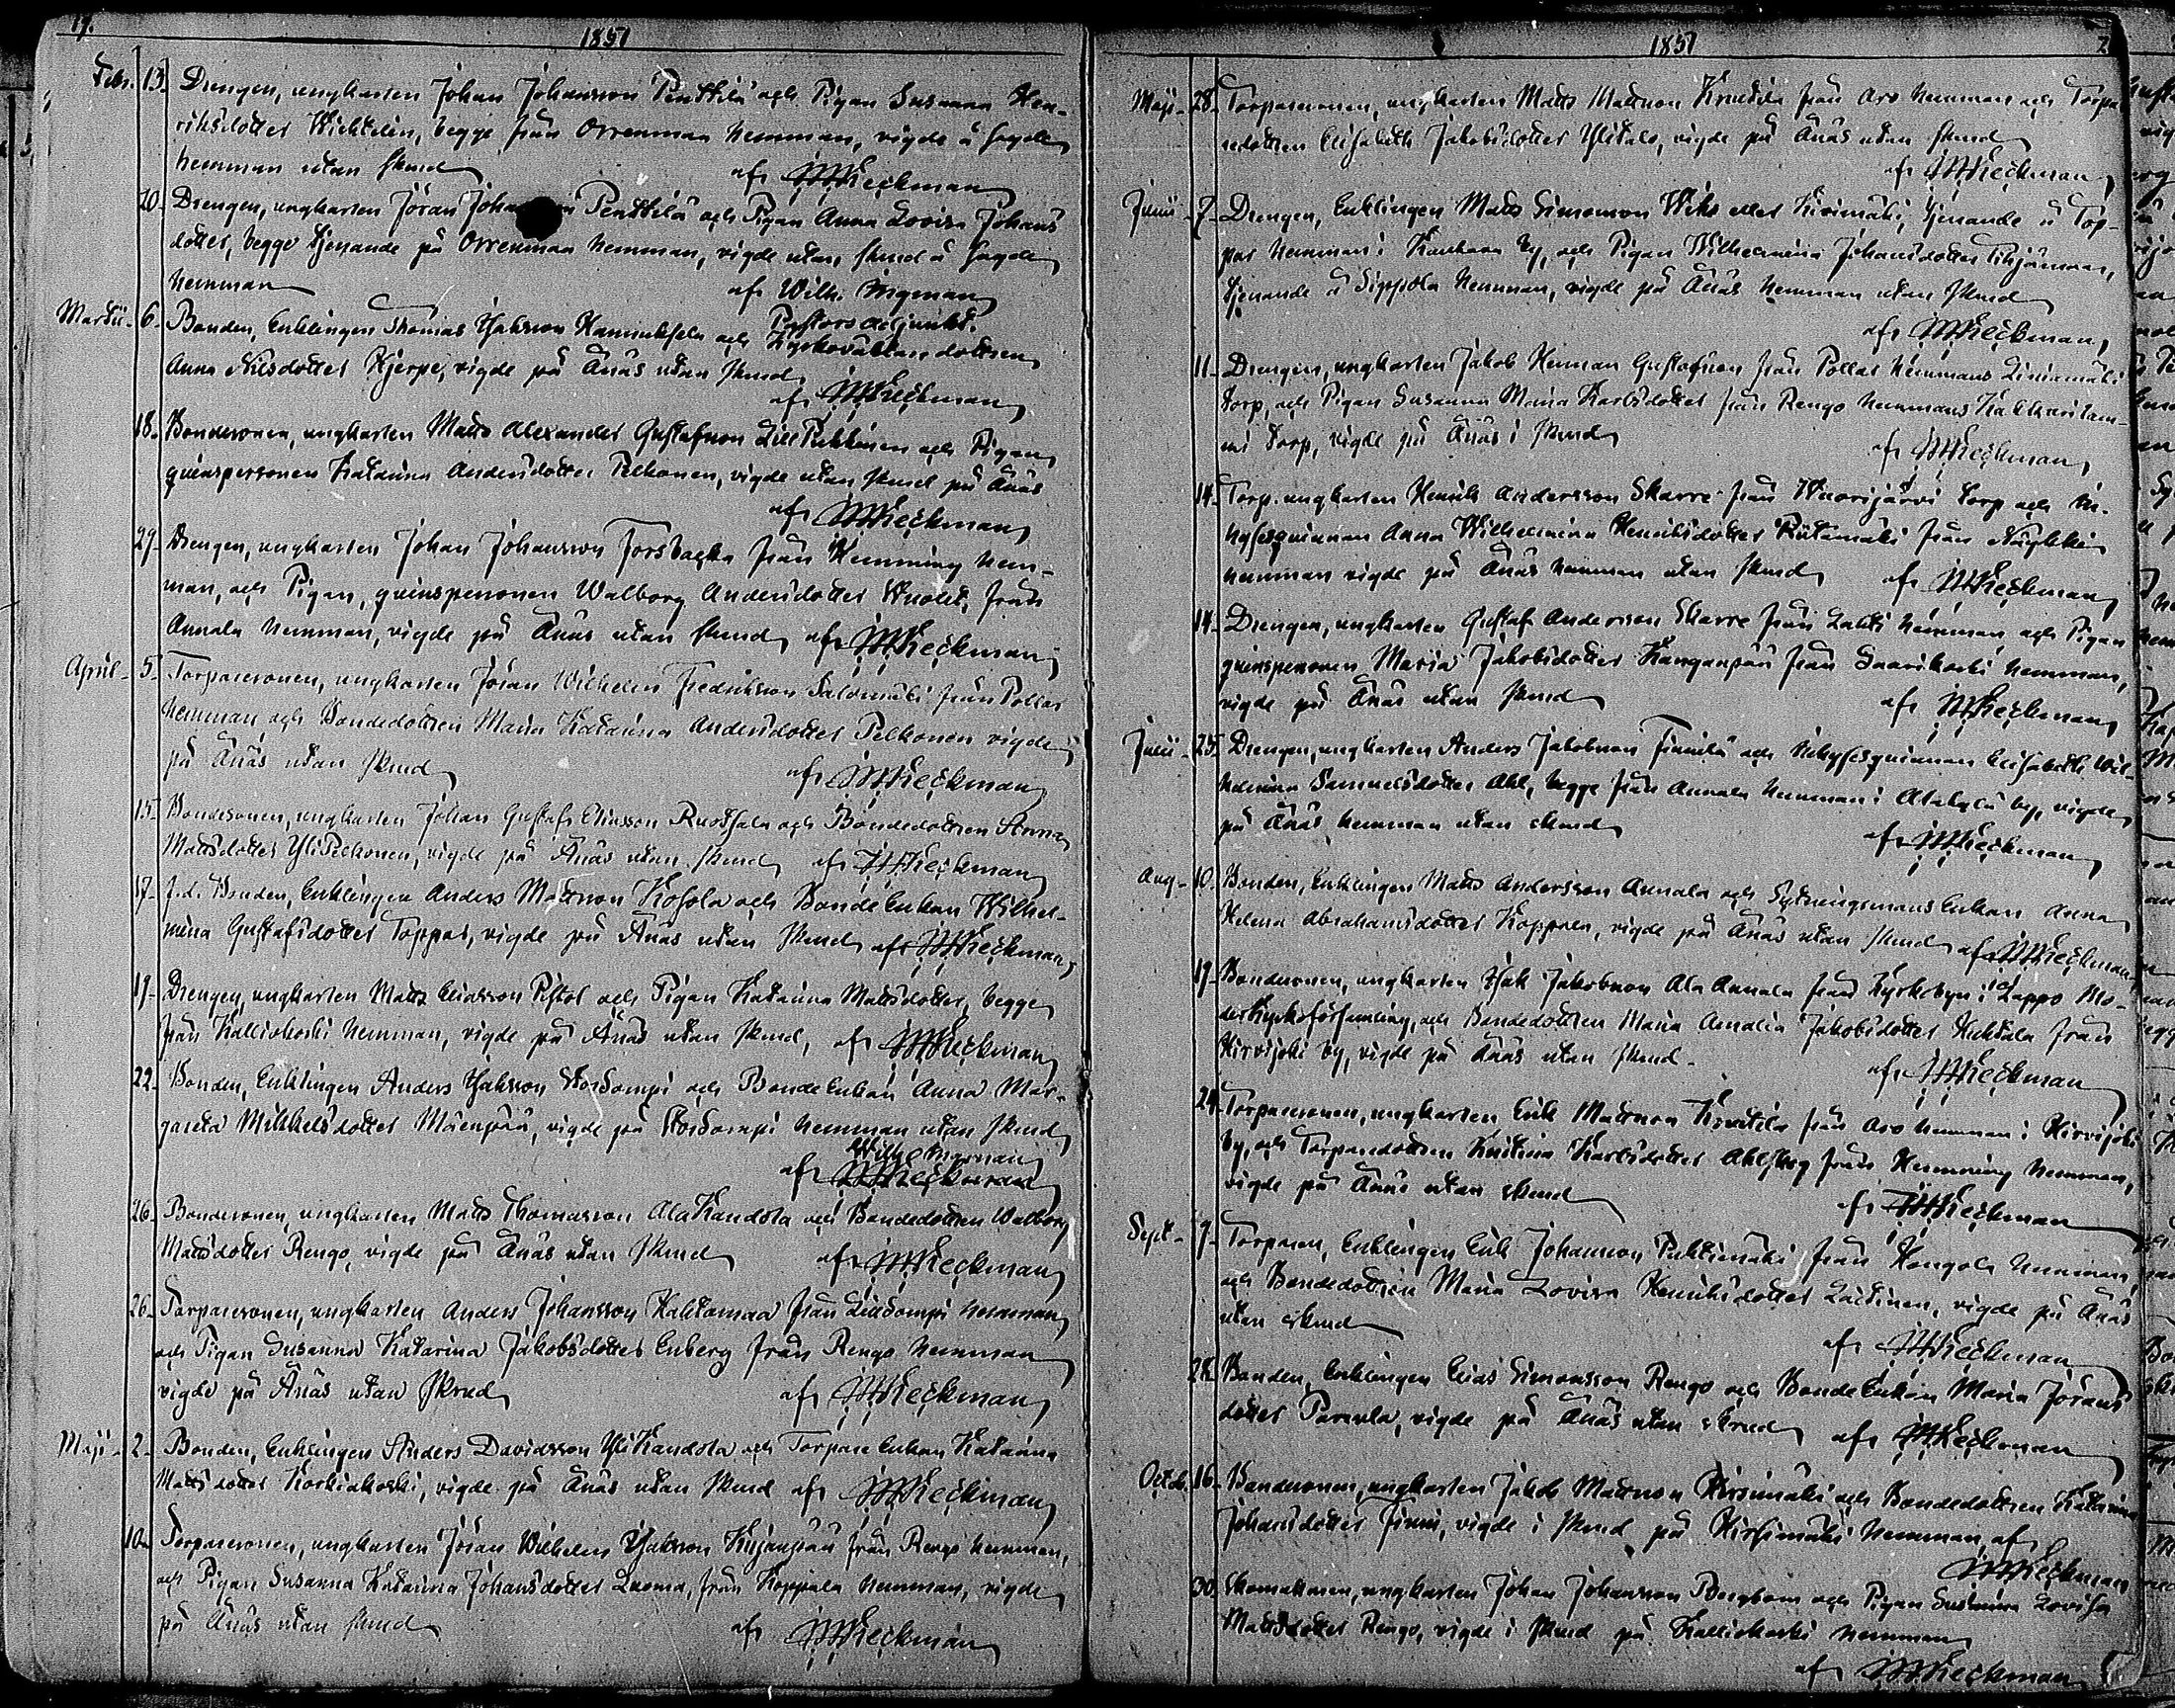 19.
1851
Febr. 13. Drengen, ungkarlen Johan Johansson Penttilä och Pigan Susanna Hen-
riksdotter Wiertelin, begge från Orrenmaa hemman, vigde å sagde
hemman utan skrud af
20. Drengen, ungkarlen Jöran Penttilä och Pigan Anna Lovisa Johans
dotter, begge tjenande på Orrenmaa hemman, vigde utan skrud å sagde
hemman af Wilh. Ingman
Pastors adjunkt.
Martii 6. Bonden, Enklingen Thomas Isaksson Hannuksela och Kyrkovaktaredottren
Anna Nilsdotter Hjerpe, vigde på Änäs utan skrud.
af
18. Bondesonen, ungkarlen Matts Alexander Gustafsson och Pigan,
qvinspersonen Katarina Andersdotter Pelkonen, vigde utan skrud på Änäs
af
29. Drengen, ungkarlen Johan Johansson Forsbacka från Hemming hem-
man, och Pigan, qvinspersonen Walborg Andersdotter från
Annala hemman, vigde på Änäs utan skrud, af
April 5. Torparesonen, ungkarlen Jöran Wilhelm Fredriksson Saldemäki från Pollar
hemman och Bondedottren Maria Katarina Andersdotter Pelkonen vigde
på Änäs utan skrud af
15. Bondesonen, ungkarlen Johan Gustaf Eliasson och Bondedottren Anna
Mattsdotter YliPelkonen, vigde på Änäs utan skrud af
17. f.d. Bonden, Enklingen Anders Mattsson Kosola och Bonde Enkan Wilhel-
mina Gustafsdotter Toppar, vigde på Änäs utan skrud af
19. Drengen, ungkarlen Matts Eliasson Pistol och Pigan Katarina Mattsdotter, begge
från Kalliokoski hemman, vigde på Änäs utan skrud, af
22. Bonden, Enklingen Anders Isaksson Stortompi och Bonde Enkan Anna Mar-
gareta Mikkelsdotter Mäenpää, vigde på Stortompi hemman utan skrud
af Wilh. Ingman
26. Bondesonen, ungkarlen Matts Thomasson AlaKandola och Bondedottren Walborg
Mattsdotter Rengo, vigde på Änäs utan skrud af
26. Torparesonen, ungkarlen Anders Johansson Haktamaa från Lilltompi hemman
och Pigan Susanna Katarina Jakobsdotter Enberg från Rengo hemman
vigde på Änäs utan skrud af
Maji 2. Bonden, Enklingen Anders Davidsson YliKandola och Torpare Enkan Katarina
Mattsdotter Korkiakoski, vigde på Änäs utan skrud af
10. Torparesonen, ungkarlen Jöran Wilhelm Isaksson Kujanpää från Rengo hemman,
och Pigan Susanna Katarina Johansdotter Luoma, från Koppala hemman, vigde
på Änäs utan skrud af
1851
Maji 28. Torparesonen, ungkarlen Matts Mattsson Krutila från Aro hemman och Torpa-
redottren Elisabeth Jakobsdotter Ylitalo, vigde på Änäs utan skrud
af
Junii 7. Drengen, Enklingen Matts Simonson Wiks eller Kivimäki, tjenande å Top-
par hemman i Kauhava by, och Pigan Wilhelmina Johansdotter
tjenande å Sippola hemman, vigde på Änäs hemman utan skrud
af
11. Drengen, ungkarlen Jakob Herman Gustafsson från Pollar hemmans Liinamäki
torp, och Pigan Susanna Maria Karlsdotter från Rengo hemmans
torp, vigde på Änäs i skrud af
14. Torp. ungkarlen Henrik Andersson Skarre från Wuorijärvi torp och In-
hysesqvinnan Anna Wilhelmina Henriksdotter Riitamäki från
hemman vigde på Änäs hemman utan skrud af
14. Drengen, ungkarlen Gustaf Andersson Skarre från Lahti hemman, och Pigan
qvinspersonen Maria Jakobsdotter Kanganpää från Saarikoski hemman,
vigde på Änäs utan skrud af
Julii 25. Drengen, ungkarlen Anders Jakobsson Finnilä och Inhysesqvinnan Elisabeth Wil-
helmina Samuelsdotter Ahl, begge från Annala hemman i Alakylä by, vigde
på Änäs hemman utan skrud af
Aug. 10. Bonden, Enklingen Matts Andersson Annala och Sytningsmans Enkan Anna
Helena Abrahamsdotter Koppala, vigde på Änäs utan skrud af
17. Bondesonen, ungkarlen Isak Jakobsson Ala Annala från Kyrkobyn i Lappo Mo-
derkyrkoförsamling, och Bondedottren Maria Amalia Jakobsdotter Huhtala från
Hirvijoki by, vigde på Änäs utan skrud. af
24. Torparesonen, ungkarlen Erik Mattsson Krutila från Aro hemman i Hirvijoki
by, och Torparedottren Kristina Karlsdotter Ahlskog från Hemming hemman,
vigde på Änäs utan skrud af
Sept. 7. Torparen, Enklingen Erik Johansson Puhtimäki från Kangola hemman
och Bondedottren Maria Lovisa Henriksdotter Laitinen, vigde på Änäs
utan skrud af
28. Bonden, Enklingen Elias Simonsson Rengo och Bonde Enkan Maria Jörans
dotter Pareula, vigde på Änäs utan skrud af
Octob. 16. Bondesonen, ungkarlen Jakob Mattsson Hirsimäki och Bondedottren Katarina
Johansdotter Finni, vigde i skrud på Hirsimäki hemman, af
30. Skomakaren, ungkarlen Johan Johansson Bergbom och Pigan Susanna Lovisa
Mattsdotter Rengo, vigde i skrud på Kalliokoski hemman
af